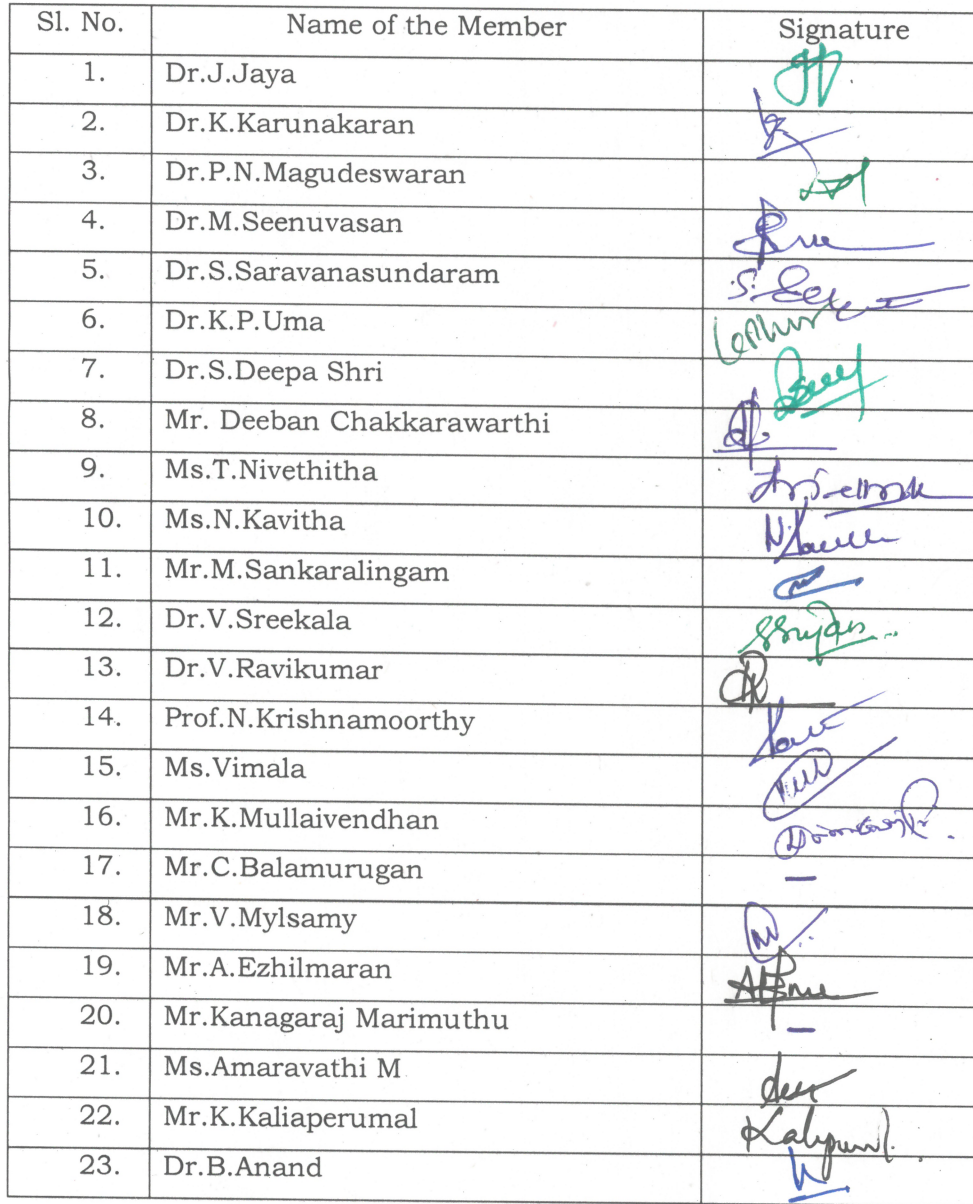 Sl. No. Name of the Member Signature
1. Dr.J.Jaya
2. Dr.K.Karunakaran
3. Dr.P.N.Magudeswaran
4. Dr.M.Seenuvasan
5. Dr.S.Saravanasundaram
6. Dr.K.P.Uma
7. Dr.S.Deepa Shri
8. Mr. Deeban Chakkarawarthi
9. Ms.T.Nivethitha
10. Ms.N.Kavitha
11. Mr.M.Sankaralingam
12. Dr.V.Sreekala
13. Dr.V.Ravikumar
14. Prof.N.Krishnamoorthy
15. Ms.Vimala
16. Mr.K.Mullaivendhan
17. Mr.C.Balamurugan –
18. Mr.V.Mylsamy
19. Mr.A.Ezhilmaran
20. Mr.Kanagaraj Marimuthu –
21. Ms.Amaravathi M
22. Mr.K.Kaliaperumal
23. Dr.B.Anand